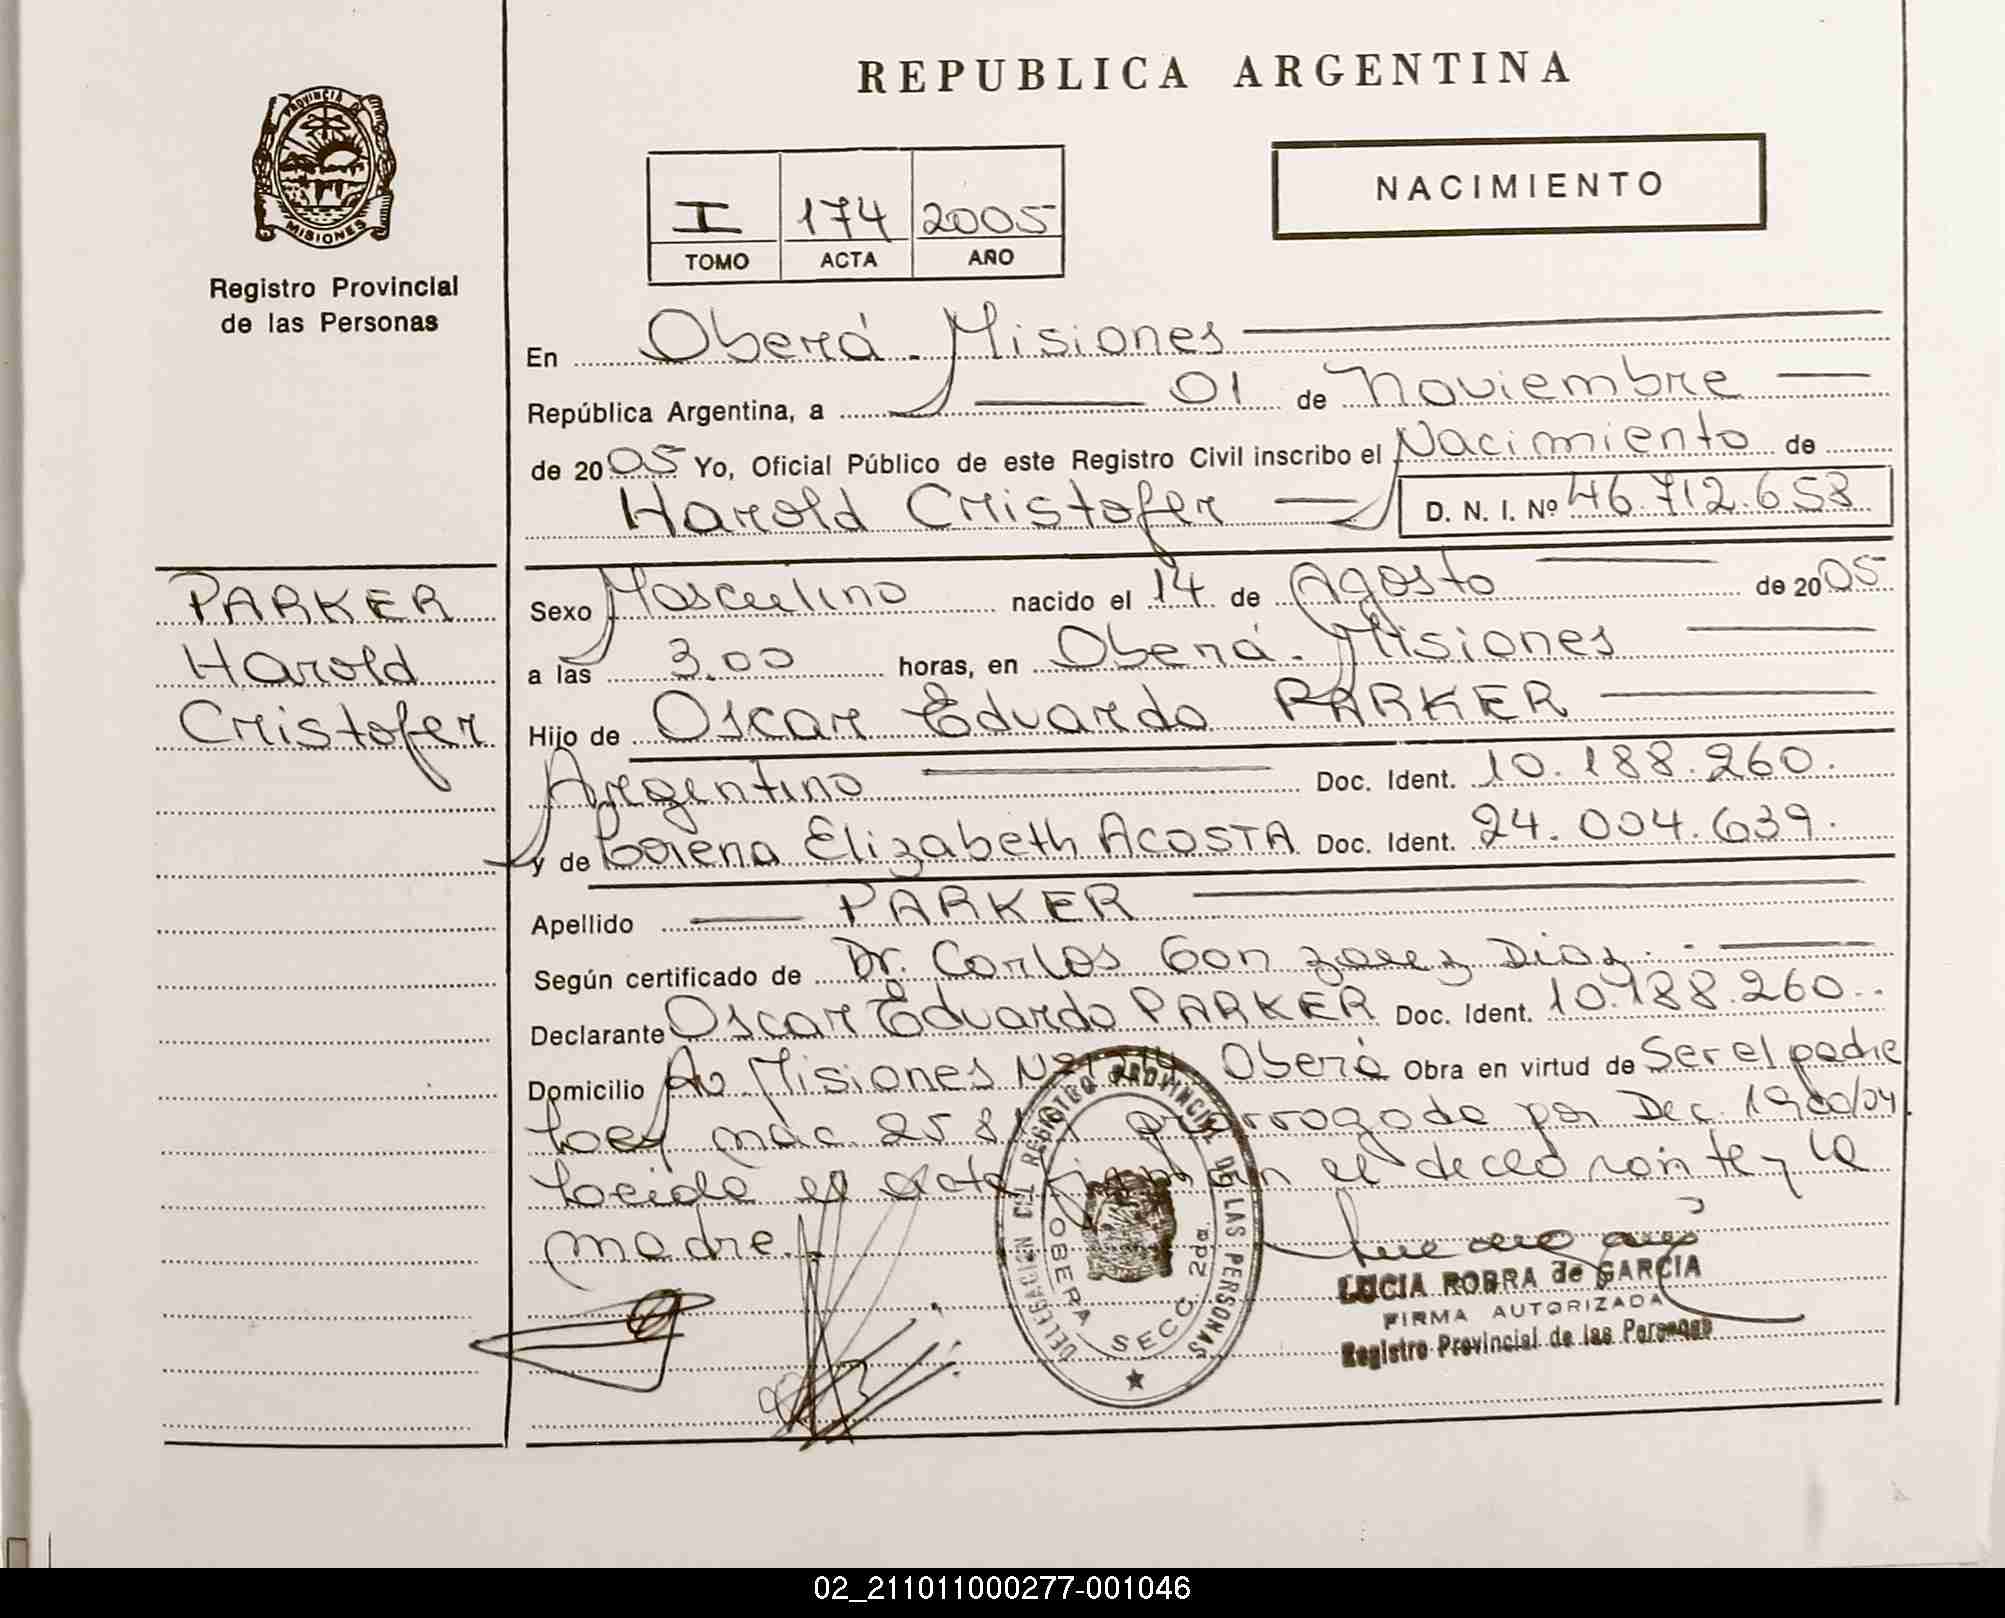 REPUBLICA ARGENTINA
PROVINCIA DE
MISIONES
Registro Provincial
de las Personas
NACIMIENTO
I 174 2005
TOMO ACTA AÑO
En Oberá - Misiones
República Argentina, a 01 de Noviembre
de 2005 Yo, Oficial Público de este Registro Civil inscribo el Nacimiento de
Harold Cristofer D. N. I. Nº 46.712.653
PARKER
Harold
Cristofer
Sexo Masculino nacido el 14 de Agosto de 2005
a las 3.00 horas, en Oberá - Misiones
Hijo de Oscar Eduardo PARKER
Argentino Doc. Ident. 10.188.260.
y de Lorena Elizabeth ACOSTA Doc. Ident. 24.004.639.
Apellido PARKER
Según certificado de Dr. Carlos Gonzalez Diaz
Declarante Oscar Eduardo PARKER Doc. Ident. 10.188.260.
Domicilio Av. Misiones Nº Oberá Obra en virtud de Ser el padre
Ley nac. prorrogada por Dec. 1900/04
Leida el acta firman el declarante y la
madre.
DELEGACION DEL REGISTRO PROVINCIAL DE LAS PERSONAS
OBERA SECC. 2da.
LUCIA ROBRA de GARCIA
FIRMA AUTORIZADA
Registro Provincial de las Personas
02_211011000277-001046